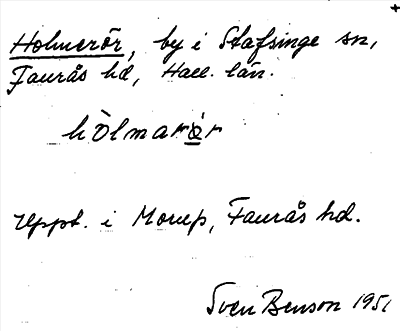 Holmerör, by i Stafsinge sn,
Faurås hd, Hall. län.
hòlmarọ̀r
Uppt. i Morup, Faurås hd.
Sven Benson 1951